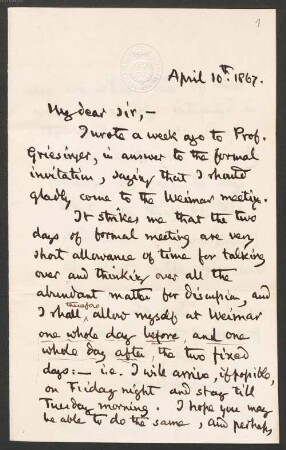 1
April 10th. 1867.
My dear Sir,—
I wrote a week ago to Prof.
Griesinger, in answer to the formal
invitation, saying that I should
gladly come to the Weimar meeting.
It strikes me that the two
days of formal meeting are very
short allowance of time for talking
over and thinking over all the
abundant matter for discussion, and
therefore
I shall allow myself at Weimar
one whole day before, and one
whole day after, the two fixed
days:— i.e. I will arrive, if possible,
on Friday night and stay till
Tuesday morning. I hope you may
be able to do the same, and perhaps,